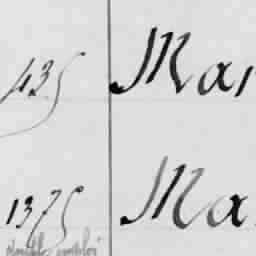 435 Mar
1375 Ma